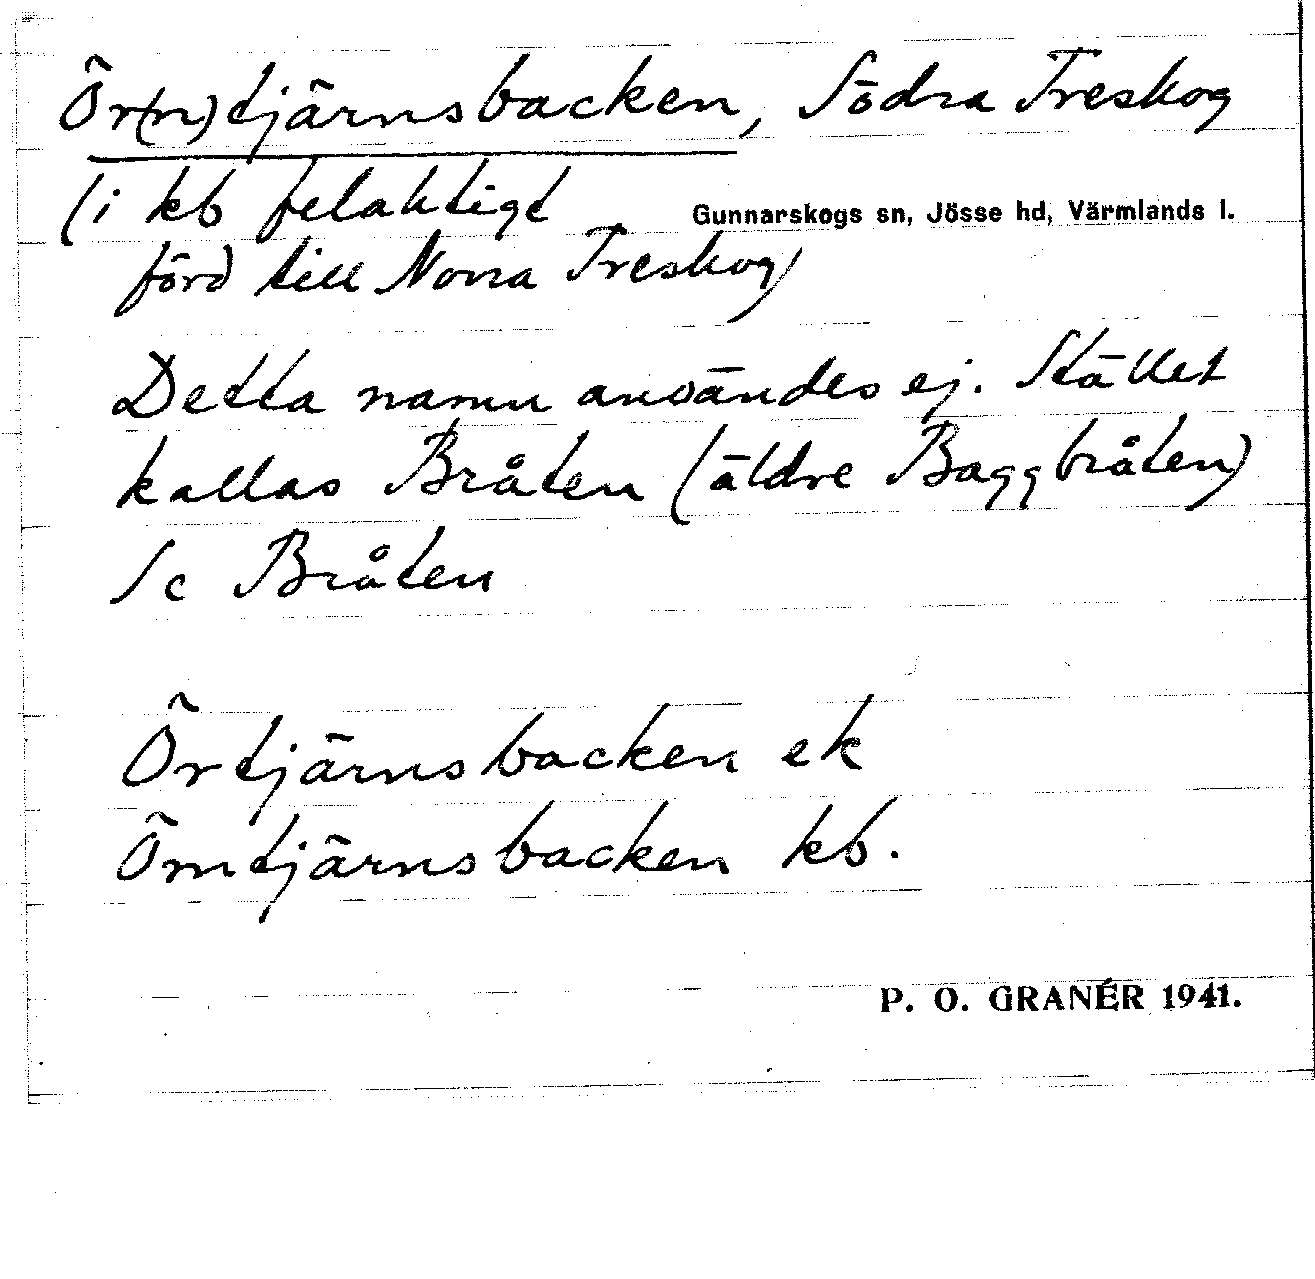 Ör(n)tjärnsbacken, Södra Treskog
(i kb felaktigt
Gunnarskogs sn, Jösse hd, Värmlands l.
förd till Norra Treskog)
Detta namn användes ej. Stället
kallas Bråten (äldre Baggbråten)
Se Bråten
Örtjärnsbacken ek
Örntjärnsbacken kb.
P. O. GRANÉR 1941.